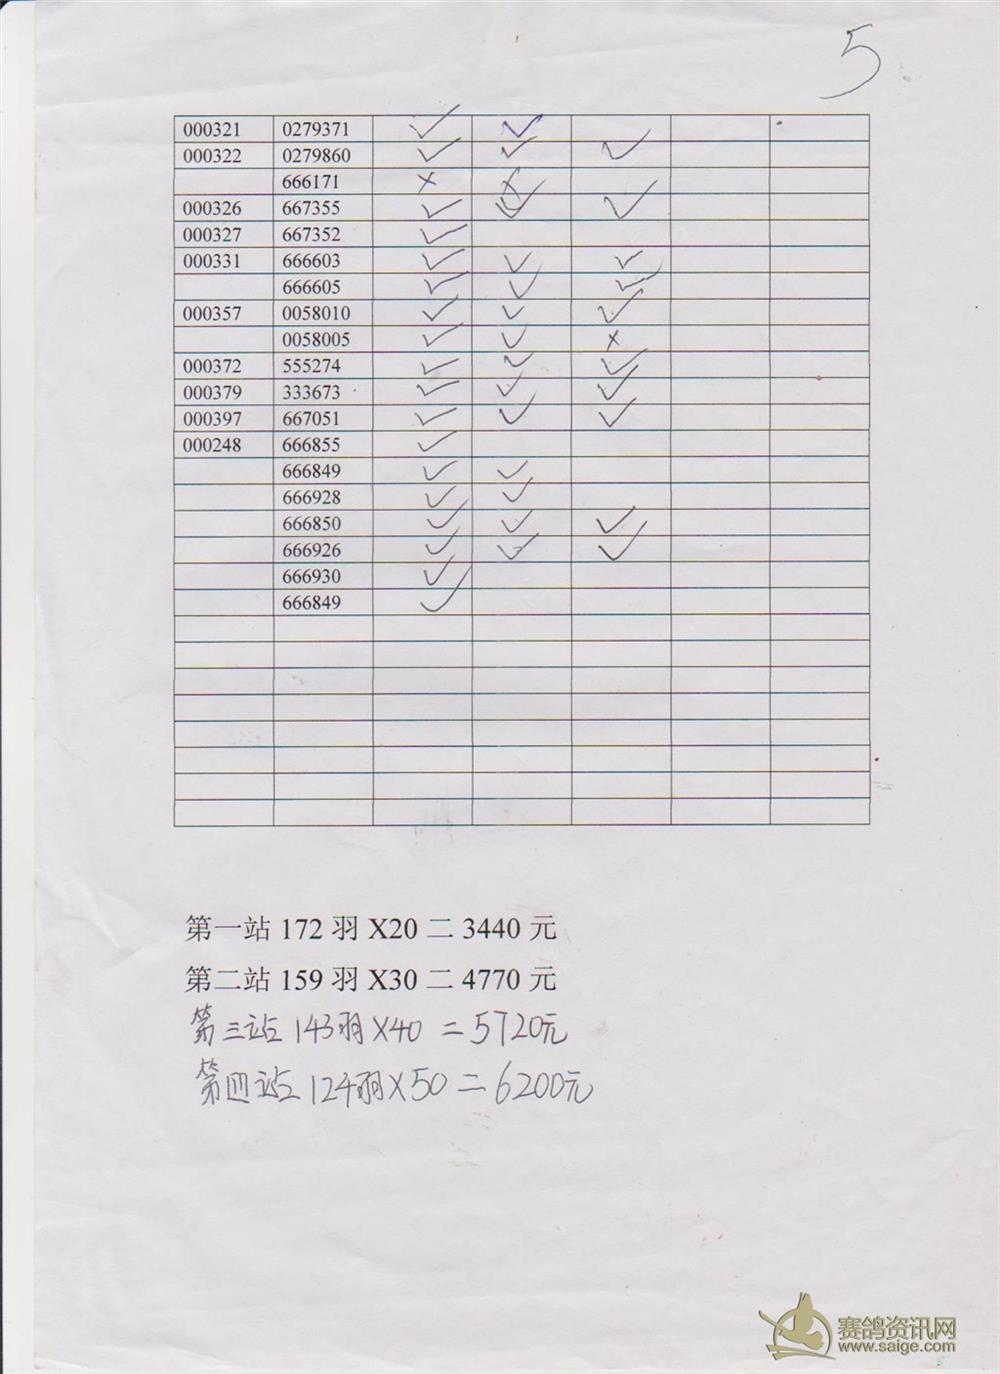 5
000321 0279371 ✓ ✓
000322 0279860 ✓ ✓ ✓
666171 × ×
000326 667355 ✓ ✓ ✓
000327 667352 ✓
000331 666603 ✓ ✓ ✓
666605 ✓ ✓ ✓
000357 0058010 ✓ ✓ ✓
0058005 ✓ ✓ ×
000372 555274 ✓ ✓ ✓
000379 333673 ✓ ✓ ✓
000397 667051 ✓ ✓ ✓
000248 666855 ✓
666849 ✓ ✓
666928 ✓ ✓
666850 ✓ ✓ ✓
666926 ✓ ✓ ✓
666930 ✓
666849 ✓
第一站 172 羽 X20 二 3440 元
第二站 159 羽 X30 二 4770 元
第三站 143羽X40 =5720元
第四站 124羽X50 =6200元
赛鸽资讯网
www.saige.com